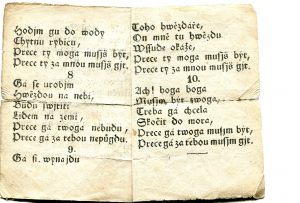 Hodjm gu do wody
Chytnu rybicu,
Prece ty moga musyš być,
Prece ty za mnou musyš gjt.
8
Gá se urobjm
Hwězdou na nebi,
Budu swjtiti
Lidem na zemi,
Prece gá twoga nebudu,
Prece gá za tebou nepůgdu.
9.
Gá si wynajdu
Toho hwězdáře,
On mně tu hwězdu
Wssude okáže,
Prece ty moga musyš být,
Prece ty za mnou musyš gjt.
10.
Ach! boga boga
Musym být twoga,
Treba gá chcela
Skočit do mora,
Prece gá twoga musym být,
Prece gá za tebou musym gjt.